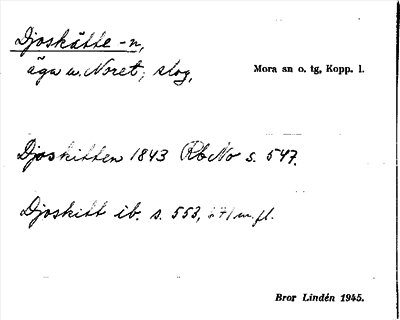 Djoskätte -n,
äga u. Noret; slog,
Mora sn o. tg, Kopp. l.
Djoskitten 1843 RbNo s. 547.
Djoskitt ib. s. 553, 671 m.fl.
Bror Lindén 1945.